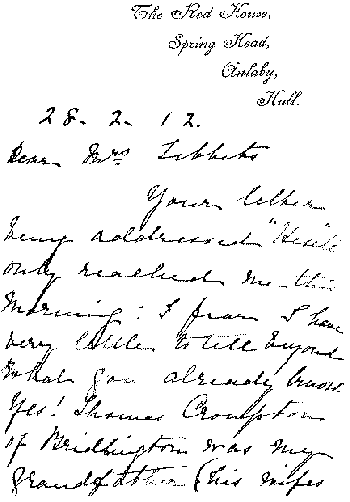 The Red House,
Spring Head,
Anlaby,
Hull.
28. 2. 12.
Dear Mrs Tibbits
Your letter
being addressed "Hessle"
only reached me this
morning: I fear I have
very little to tell beyond
what you already know.
Yes! Thomas Crompton
of Bridlington was my
grandfather (his wifes